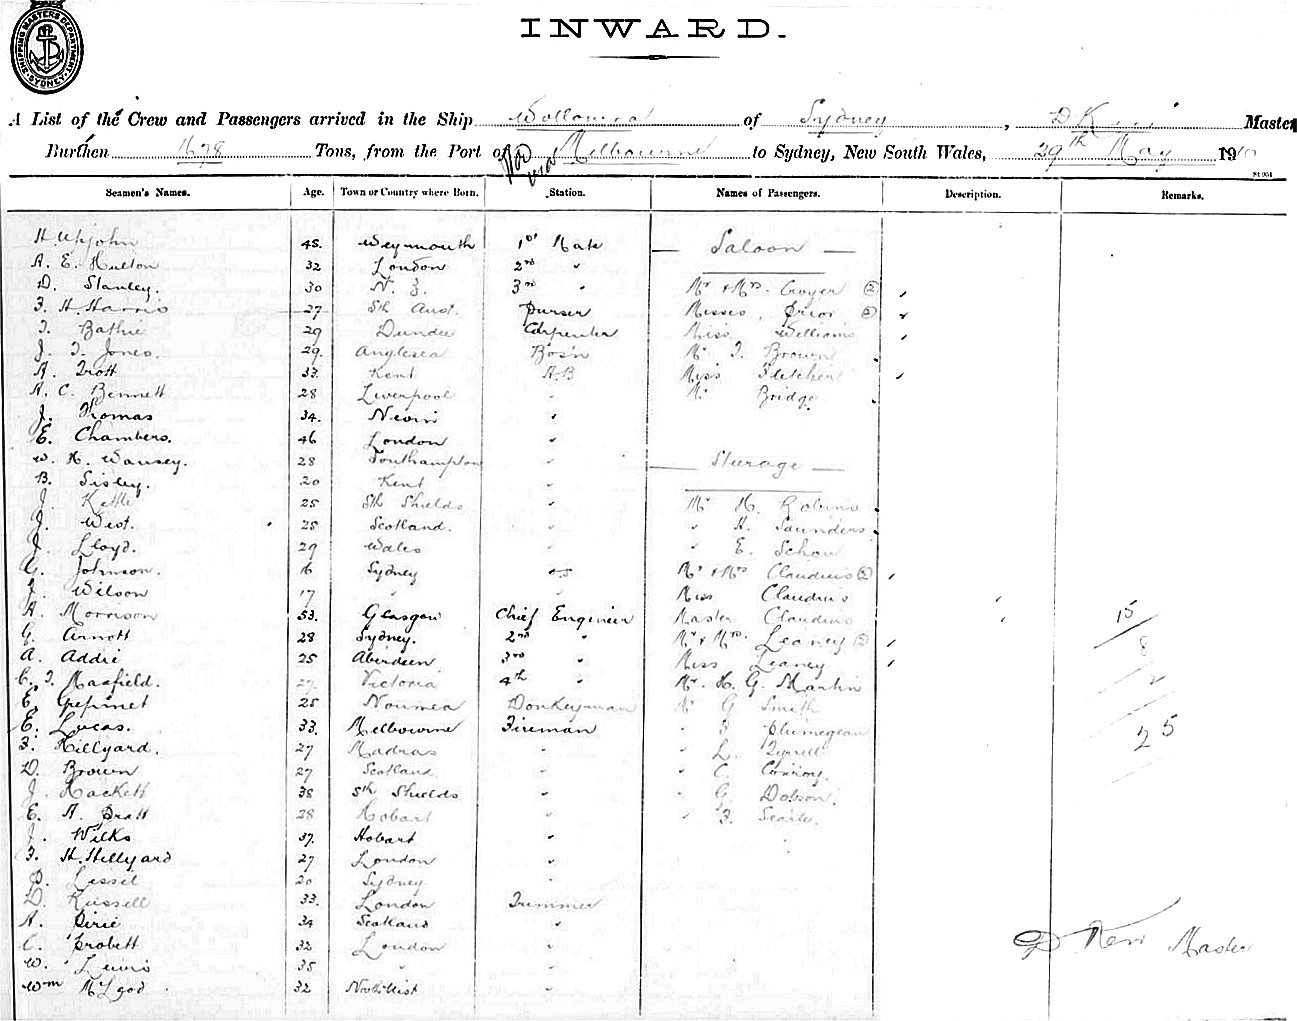 SHIPPING MASTERS DEPARTMENT SYDNEY
INWARD.
A List of the Crew and Passengers arrived in the Ship Wollowra of Sydney, D Kerr Master
Burthen 1678 Tons, from the Port of Melbourne to Sydney, New South Wales, 29th May 1910
Seamen's Names. Age. Town or Country where Born. Station. Names of Passengers. Description. Remarks.
H. Upjohn 48. Weymouth 1st Mate — Saloon —
A. E. Hulton 32 London 2nd "
D. Stanley. 30 N. Z. 3rd " Mr & Mrs. Croyer (2)
F. H. Harris 27 Sth Aust. Purser Misses. Prior (2)
T. Bathie 29 Dundee Carpenter Miss Williams
J. T. Jones. 29. Anglesea Bos'n Mr T. Brown
A. Trott 33. Kent A.B Miss Fletcher
A. C. Bennett 28 Liverpool " Mr Bridge
J. Thomas 34. Nevin "
E. Chambers. 46 London "
W. H. Wansey. 28 Southampton " — Sturage —
B. Sisley. 20 Kent "
J. Kettle 25 Sth Shields " Mr H. Robins
J. West. 25 Scotland. " " H. Saunders
J. Lloyd. 29 Wales " " E. Schou
G. Johnson. 16 Sydney OS Mr & Mrs Claudius (2)
J. Wilson 17 " " Miss Claudius
A. Morrison 53. Glasgow Chief Engineer Master Claudius 15
G. Arnott 28 Sydney. 2nd " Mr & Mrs. Leaney (2) 8
A. Addie 25 Aberdeen 3rd " Miss Leaney
C. J. Maxfield. 27. Victoria 4th " Mr. H. G. Martin 2
E. Gepinet 25 Noumea Donkeyman Mr G Smith
E. Lucas. 33. Melbourne Fireman " F Plumegean 25
F. Hillyard. 27 Madras " " L. Tyrrell
D. Brown 27 Scotland " " C. Conroy.
J. Hackett 38 Sth Shields " " G. Dobson.
E. A. Pratt 28 Hobart " " F. Searle.
J. Wilks 37. Hobart "
F. H. Hillyard 27 London "
Lessil 20 Sydney. "
D. Russell 33. London Trimmer
A. Pirie 34 Scotland "
C. Probett 32 London " D Kerr Master
W. Lewis 35 " "
Wm McLeod 32 North Uist "